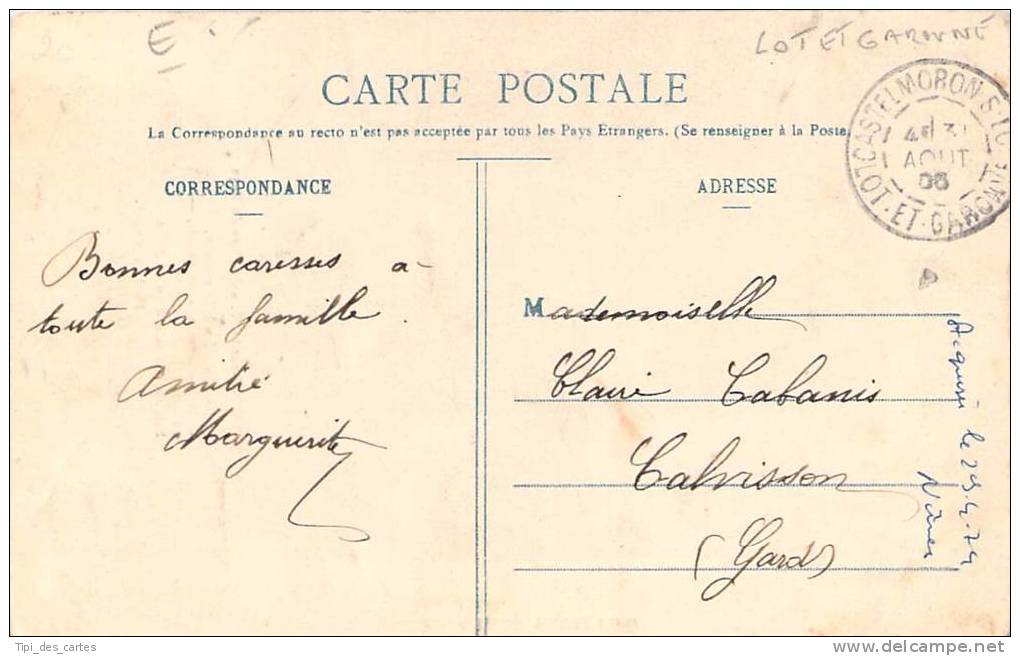 E
LOT ET GARONNE
CARTE POSTALE
La Correspondance au recto n'est pas acceptée par tous les Pays Étrangers. (Se renseigner à la Poste)
CORRESPONDANCE
ADRESSE
CASTELMORON-S-LOT
31
AOUT
06
LOT-ET-GARONNE
Bonnes caresses a
toute la famille.
Amitié
Marguerite
Mademoiselle
Claire Cabanis
Calvisson
(Gard)
le 29.4.74
Nîmes
Tipi_des_cartes
delcampe.net